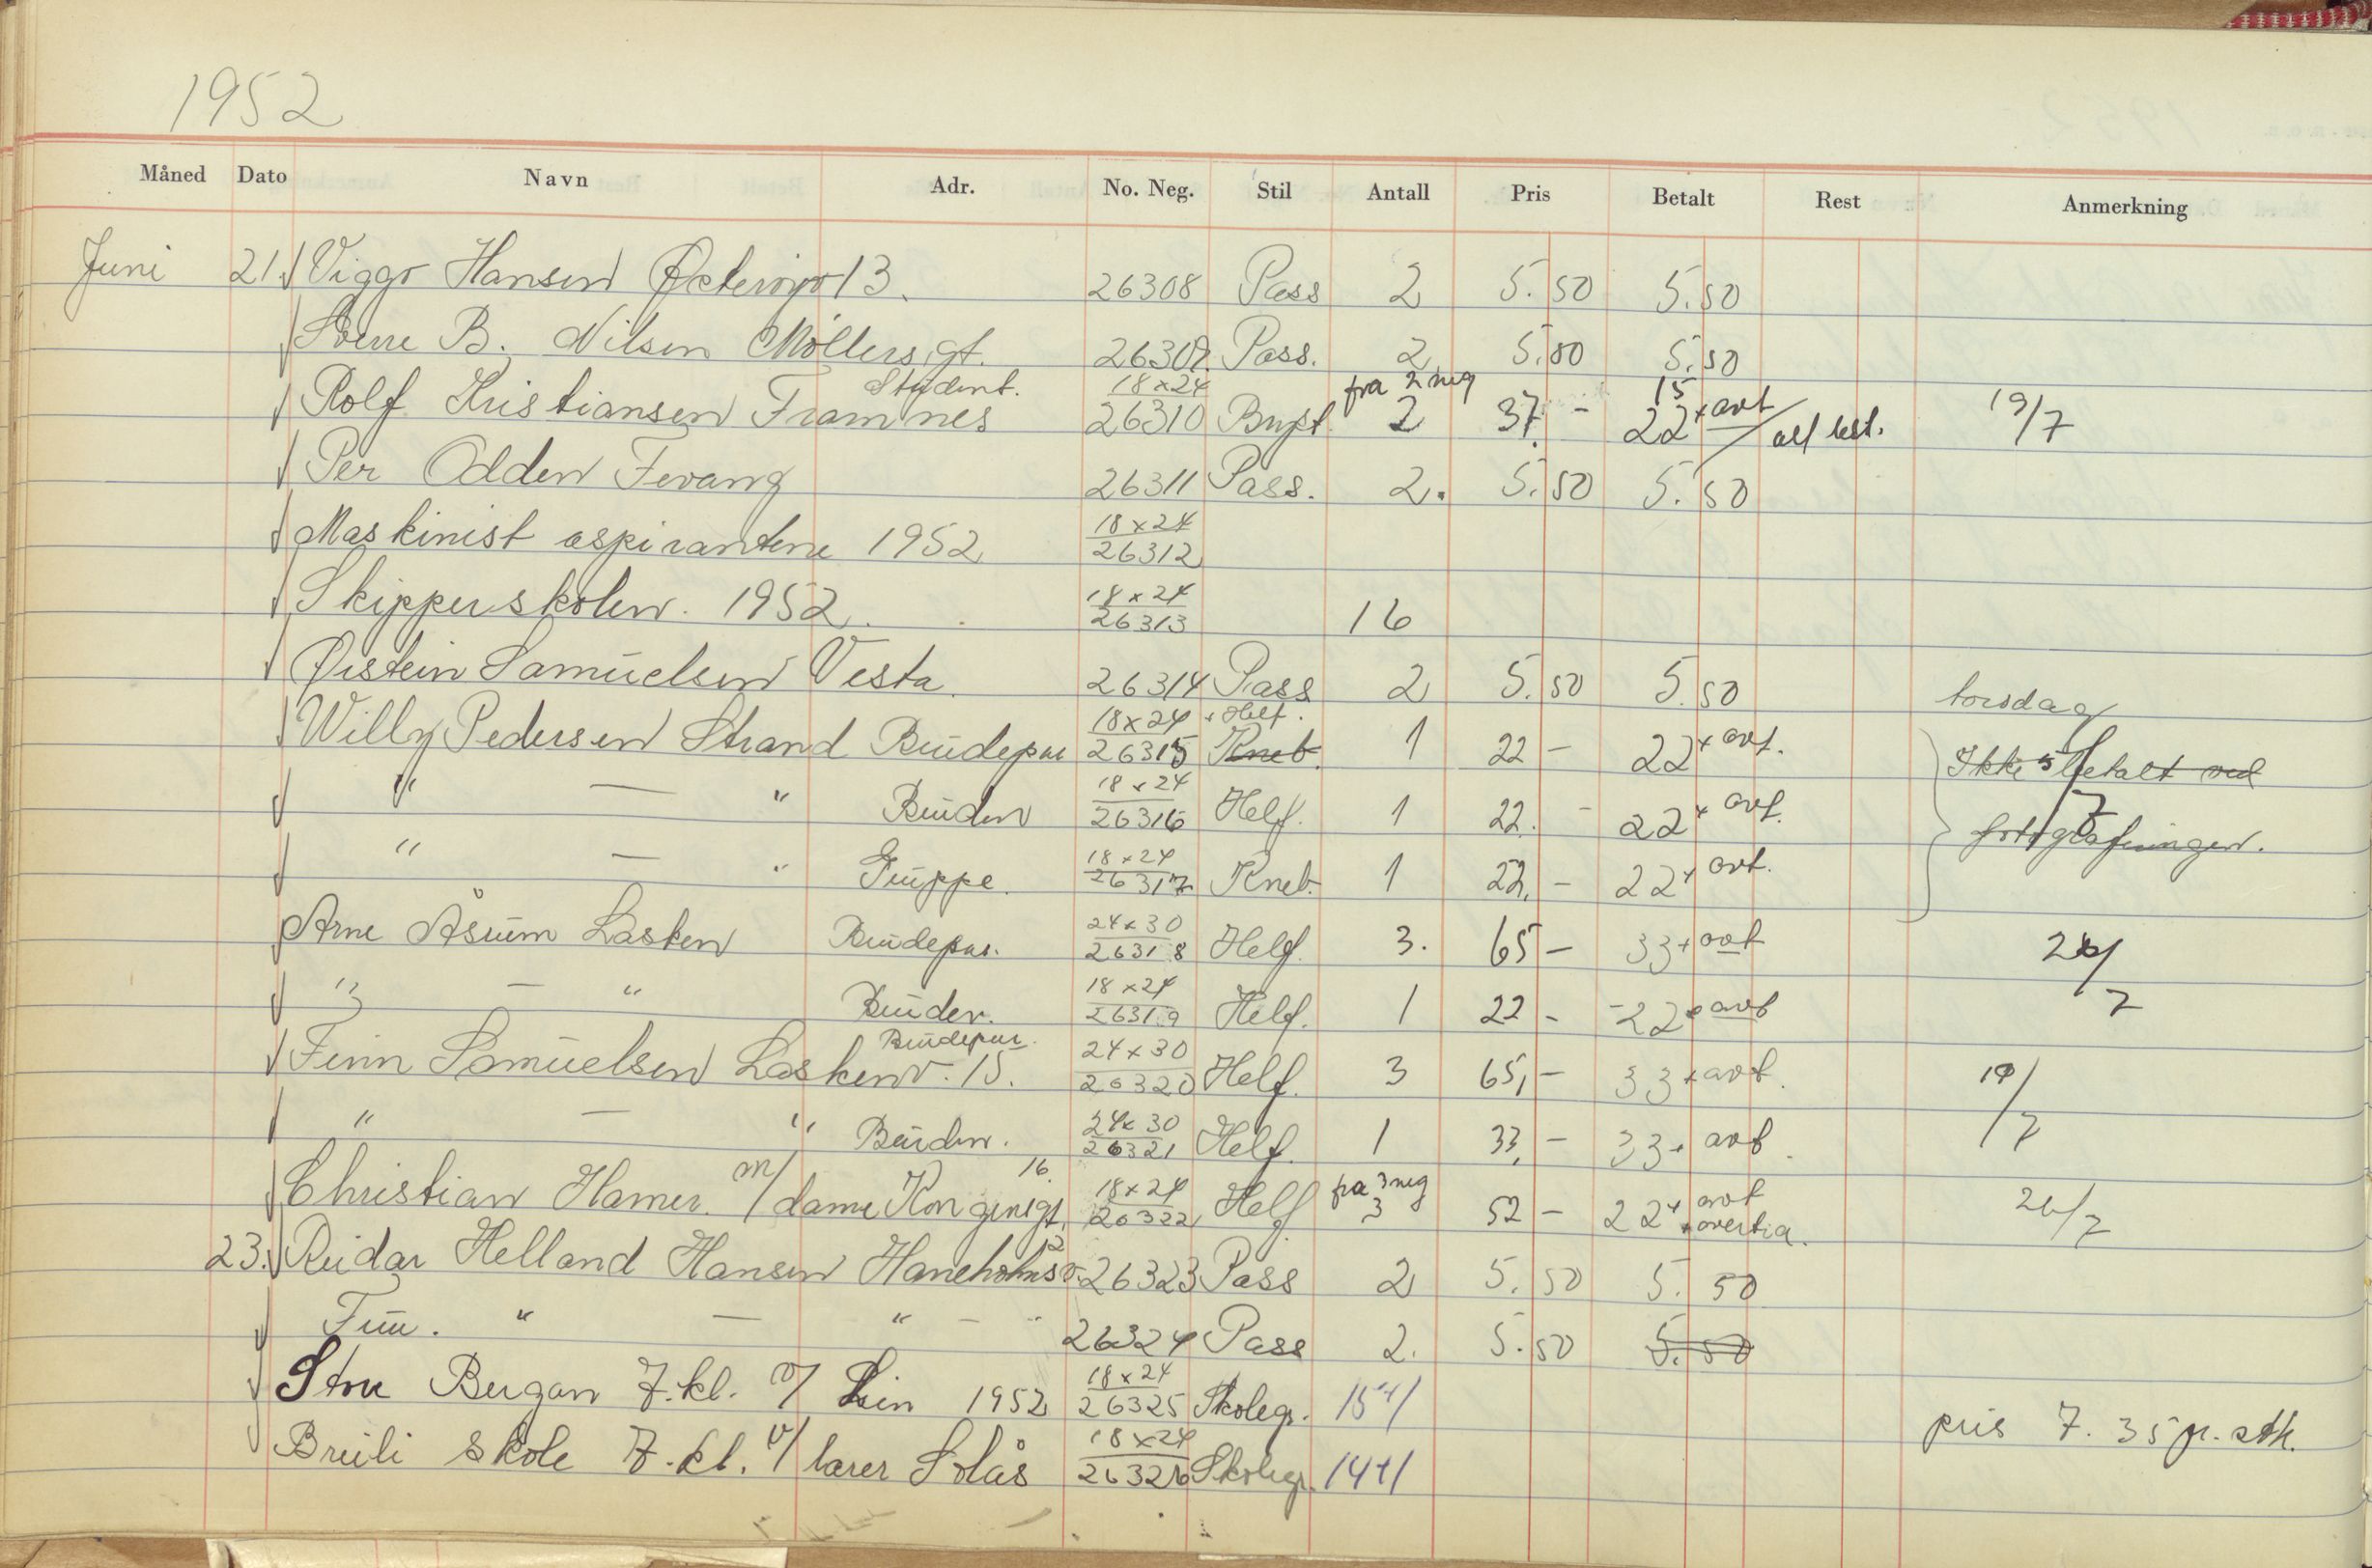 1952
Måned Dato Navn Adr. No. Neg. Stil Antall Pris Betalt Rest Anmerkning
Juni 21. Viggo Hansen 13. 26308 Pass 2 5.50 5.50
Sverre B. Nilsen Møllers gt. 26309 Pass. 2 5.50 5.50
Student. 18x24 fra 2 neg 15
Rolf Kristiansen Framnes 26310 Bryst. 2 37.- 22 + avt 19/7
Per Odden Fevang 26311 Pass. 2. 5.50 5.50
Maskinist aspirantene 1952 18x24 26312
Skipperskolen. 1952. 18x24 26313 16
Øistein Samuelsen Vesta. 26314 Pass 2 5.50 5.50 torsdag
Willy Pedersen Strand Brudepar 18x24 26315 + Helf. Kneb. 1 22 - 22 + avt. Ikke betalt ved
" — " Bruden 18x24 26316 Helf. 1 22. - 22 + avt. fotograferingen.
" — " Gruppe. 18x24 26317 Kneb. 1 22,- 22 + avt.
Arne Åsrum Lasken Brudepar. 24x30 26318 Helf. 3. 65 - 33 + avt 26/7
" — " Bruden. 18x24 26319 Helf. 1 22 - 22 + avt
Brudepar.
Finn Samuelsen Laskenv. 15. 24x30 26320 Helf. 3 65,- 33 + avt. 19/7
" — " Bruden. 24x30 26321 Helf. 1 33,- 33 + avt.
Christian Hamer. m/ dame Kongensgt. 16. 18x24 26322 Helf fra 3 neg 3 52 - 22 + avt + overtid. 26/7
23. Reidar Helland Hansen Haneholmsv. 12 26323 Pass 2 5.50 5.50
Finn. " — " - " 26324 Pass 2. 5.50 5.50
Store Bergan 7.kl. v/ Lien 1952 18x24 26325 Skolegr. 15+1
Breili skole 7.kl. v/ lærer Solås 18x24 26326 Skolegr. 14+1 pris 7.35 pr. stk.